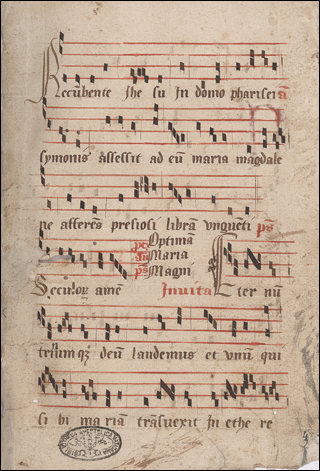 Recūbente ihe su in domo pharisei
symonis assessit ad eū maria magdale
ne afferēs presiosi librā vnguēti ps
Optima
Maria
Magni
Seculoꝝ amē Inuita Eter nū
trīum qꝫ deū laudemus et vnū qui
si bi mariā trāsuexit in ethe re